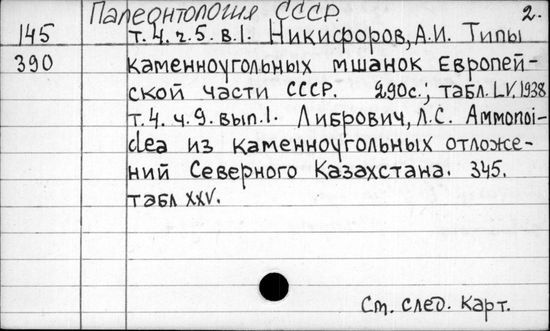 Палеонтология СССР. 2.
145 т. 4. ч. 5. в. 1. Никифоров, А.И. Типы
390 каменноугольных мшанок Европей-
ской части СССР. 290с.; табл. LV. 1938
т. 4. ч. 9. вып. 1. Либрович, Л.С. Ammonoi-
dea из каменноугольных отложе-
ний Северного Казахстана. 345.
табл XXV.
См. след. карт.